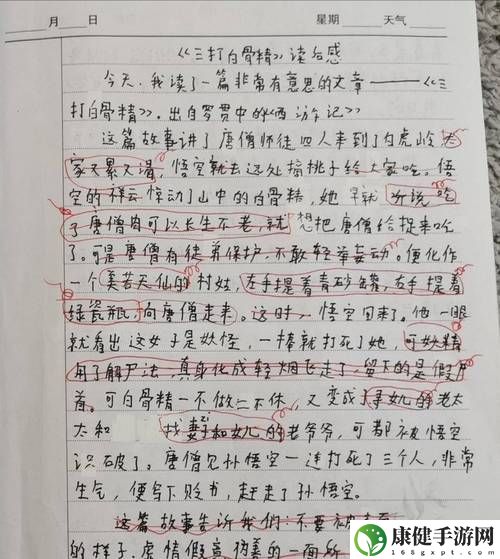 月 日 星期 天气
《三打白骨精》读后感
今天,我读了一篇非常有意思的文章——《三
打白骨精》。出自罗贯中的《西游记》
这篇故事讲了唐僧师徒四人来到了白虎岭,大
家又累又渴,悟空就去远处摘桃子给大家吃。悟
空的祥云惊动了山中的白骨精,她早就听说吃
了唐僧肉可以长生不老,就想把唐僧给捉来吃
了。可是唐僧有徒弟保护,不敢轻举妄动。便化作
一个美若天仙的村姑,左手提着青砂罐,右手提着
绿瓷瓶,向唐僧走来。这时,悟空回来了。他一眼
就看出这女子是妖怪,一棒就打死了她,可妖精
用了解尸法,真身化成轻烟飞走了,留下的是假尸
首。可白骨精一不做二不休,又变成了寻女儿的老太
太和 找妻子和女儿的老爷爷,可都被悟空
识破了。唐僧见孙悟空一连打死了三个人,非常
生气,便写下贬书,赶走了孙悟空。
这篇故事告诉我们不要被
的样子,虚情假意,伪善的一面所
康健手游网
168gxpt.com